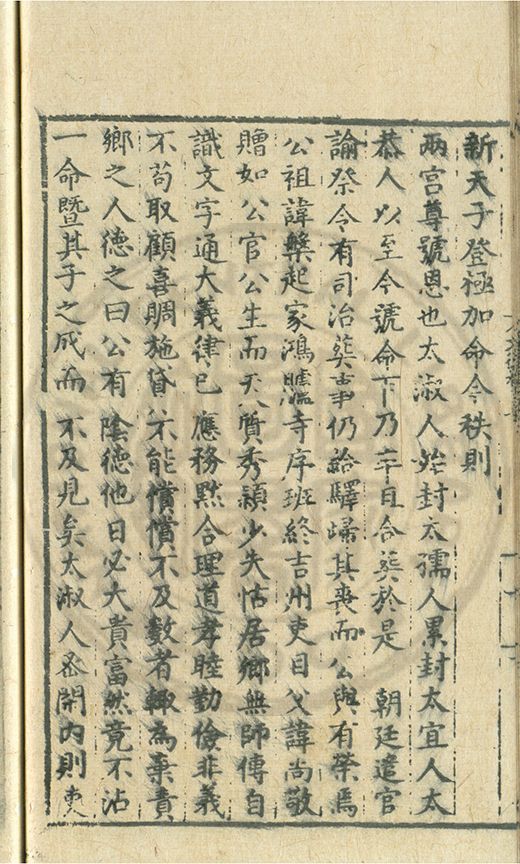 新天子登極加命今秩則
兩宮尊號恩也太淑人始封太孺人累封太宜人太
恭人以至今號命下乃卒且合葬於是　朝廷遣官
諭祭令有司治葬事仍給驛歸其喪而公與有榮焉
公祖諱槩起家鴻臚寺序班終吉州吏目父諱尚敬
贈如公官公生而天質秀穎少失怙居鄉無師傅自
識文字通大義律己應務黙合理道孝睦勤儉非義
不苟取顧喜賙施貸不能償償不及數者輒為棄責
鄉之人德之曰公有陰德他日必大貴富然竟不沾
一命暨其子之成而不及見矣太淑人 閑內則